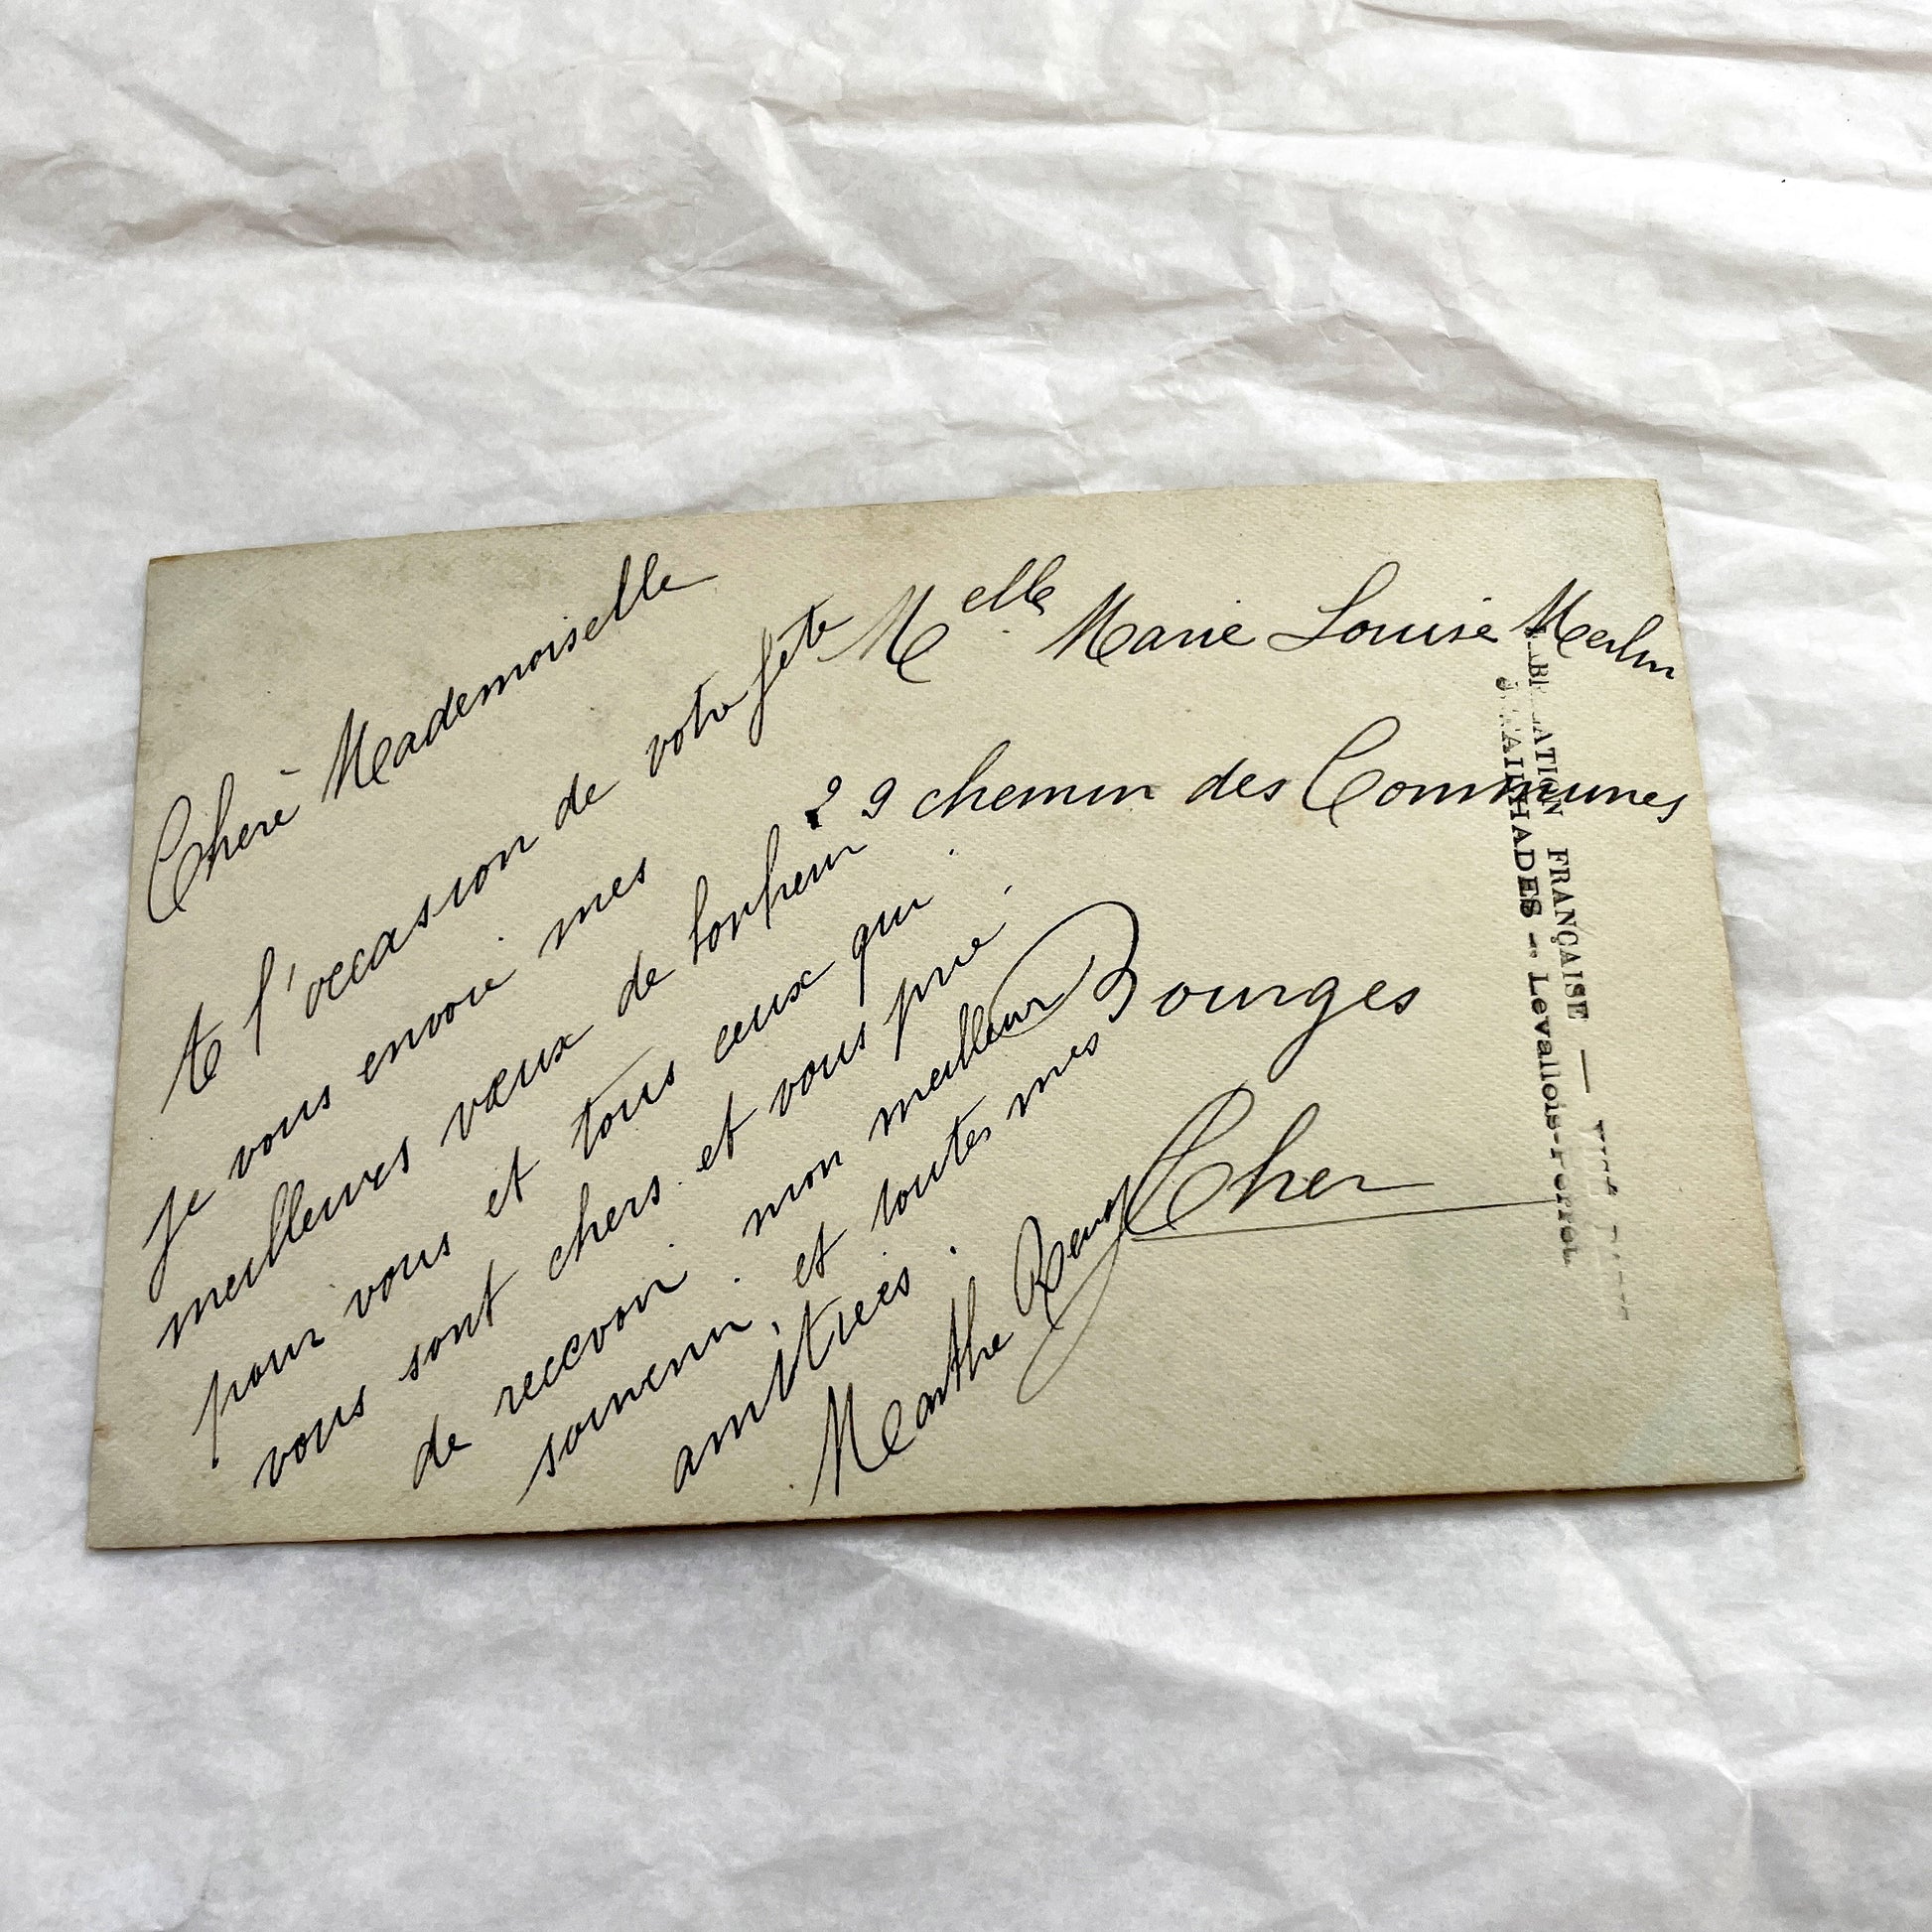 Chere Mademoiselle
A l'occasion de votre fête
je vous envoie mes
meilleures vœux de bonheur
pour vous et tous ceux qui
vous sont chers et vous prie
de recevoir mon meilleur
souvenir, et toutes mes
amitiées.
Marthe
Melle Marie Louise Merlin
29 chemin des Communes
Bourges
Cher
FRANÇAISE —
— Levallois-Perret